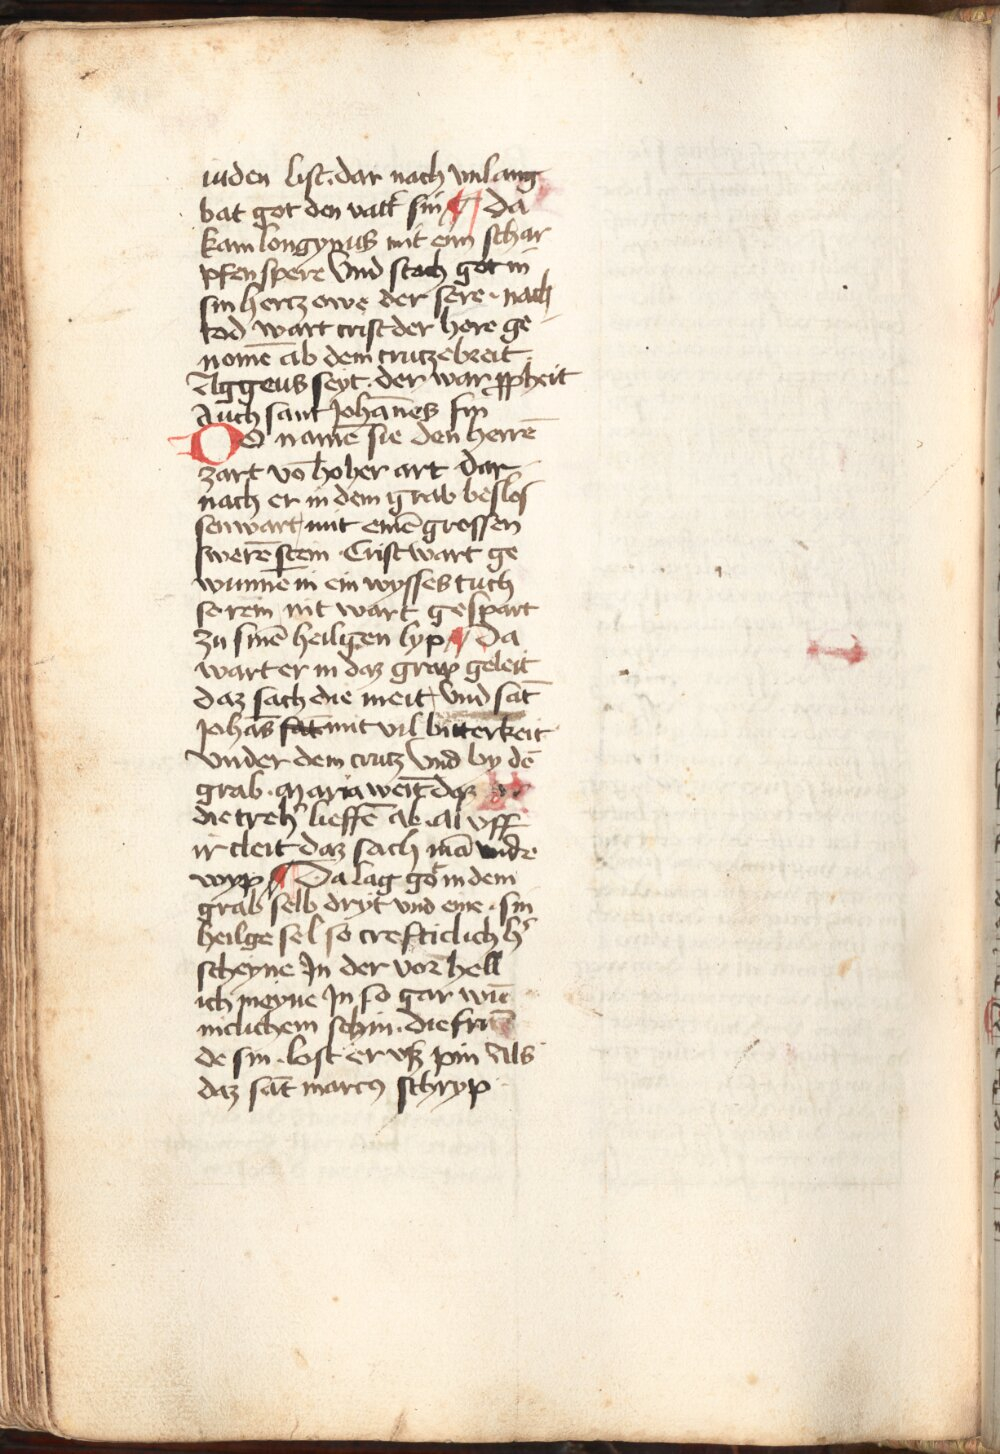 iuden list. dar nach vnlang
bat got den vatt sin ¶ da
kam longynus mit eim schar
pfen spere Vnd stach got in
sin hertz owe der sere. nach
tod wart crist der here ge
nomē ab dem crutze breit
Aggeus seyt. der war ꝓpheit
Auch sant Johānes sin
DO namē sie den herrē
zart vō hoher art Dar
nach er in dem grab beslos
sen wart mit einē grossen
swerē stein. Crist wart ge
wunnē in ein wysses tuch
so rein nit wart gespart
zu sinē heiligen lyp ¶ Da
wart er in daz grap geleit
daz sach die meit Vnd sāt
Johās mit vil bitterkeit
Vnder dem crutz Vnd by dē
grab. Maria weīt daz
die treh's lieffē ab. al vff
ir cleit daz sach mā
wyp ¶ Da lag got in dem
grab selb dryt vnd eine. sin
heilge sel so crefticlich h's
scheyne In der vor hell
ich meyne In so gar wū
niclichem schin. die frū
de sin. lost er vß pin Als
daz sāt marcꝰ schryp